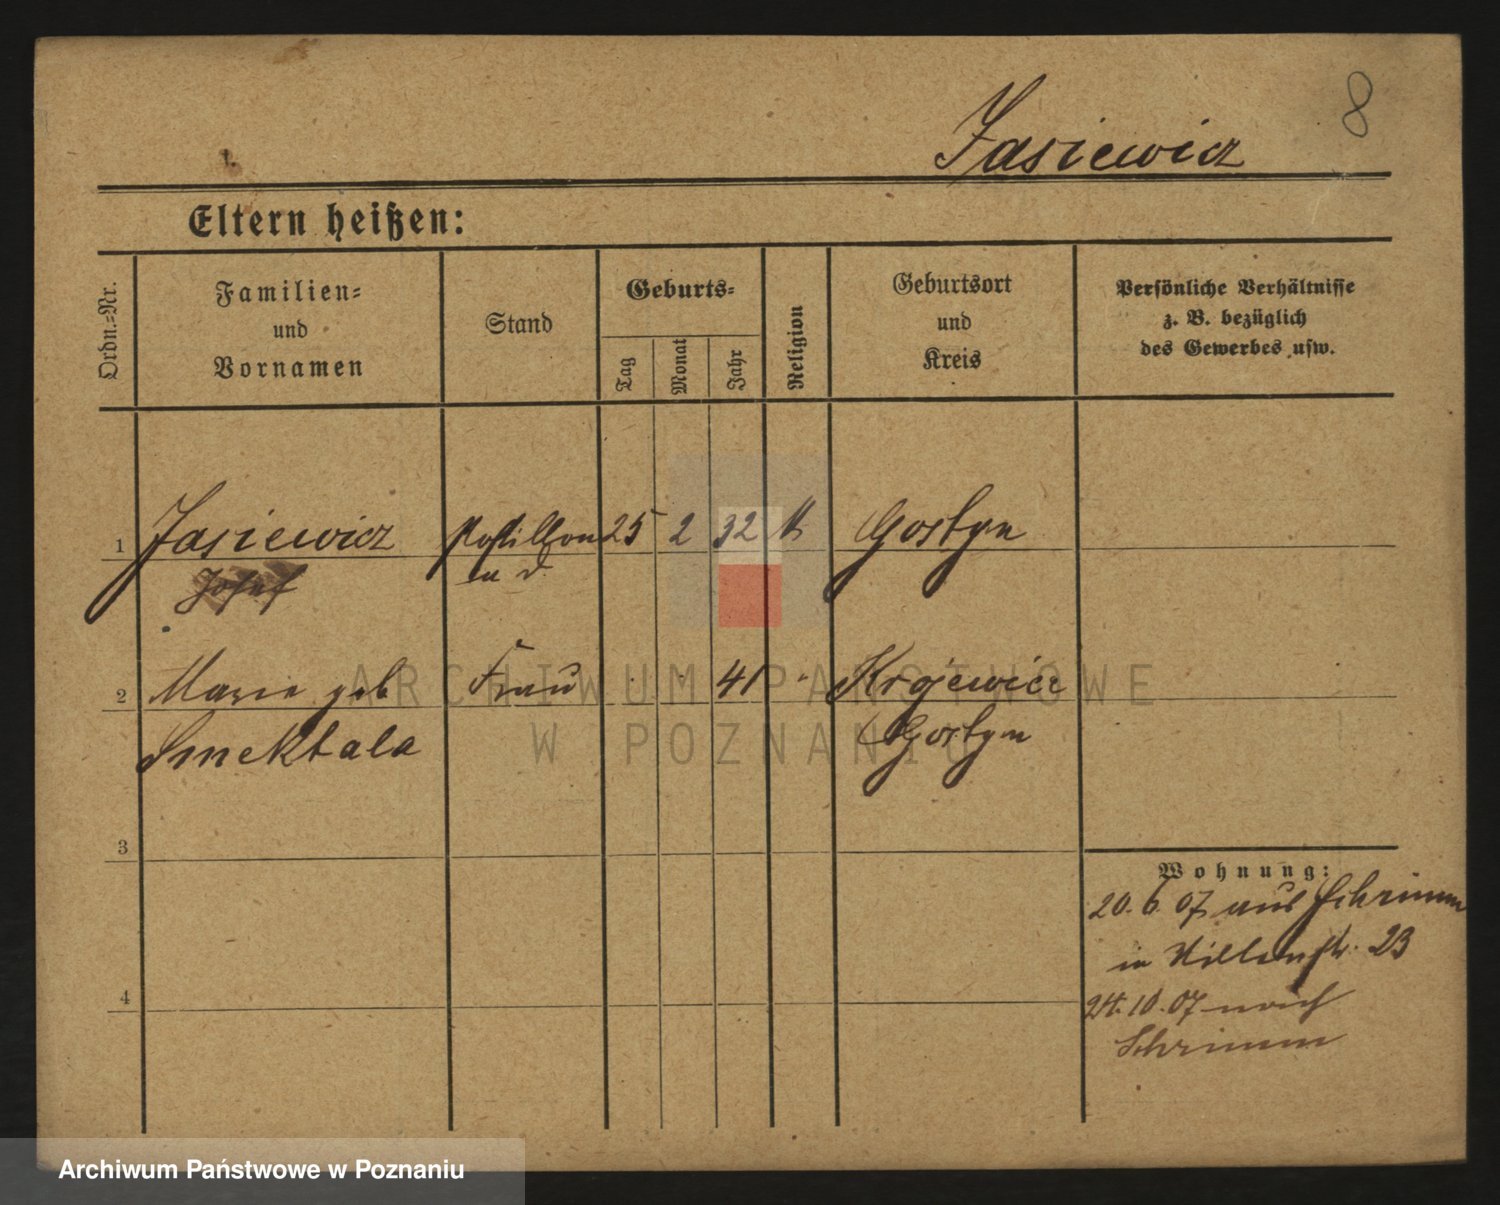 8
Jasiewicz
Eltern heißen:
Ordn.=Nr.
Familien=
und
Vornamen
Stand
Geburts=
Tag
Monat
Jahr
Religion
Geburtsort
und
Kreis
Persönliche Verhältnisse
z. B. bezüglich
des Gewerbes usw.
1 Jasiewicz Postillon 25 2 32 k Gostyn
Josef a D
2 Marie geb Frau 41 " Krajewice
Smektala Gostyn
3
Wohnung:
20.6.07 aus Schrimm
in 23
4
24.10.07 nach
Schrimm
ARCHIWUM PAŃSTWOWE
W POZNANIU
Archiwum Państwowe w Poznaniu